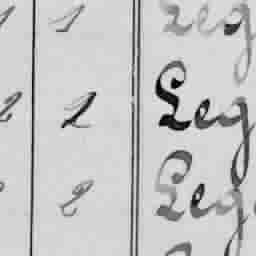 1 1 Leg
2 2 Leg
2 2 Leg